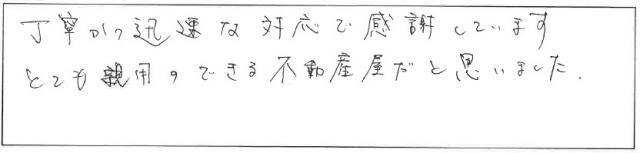 丁寧かつ迅速な対応で感謝しています
とても親用のできる不動産屋だと思いました.